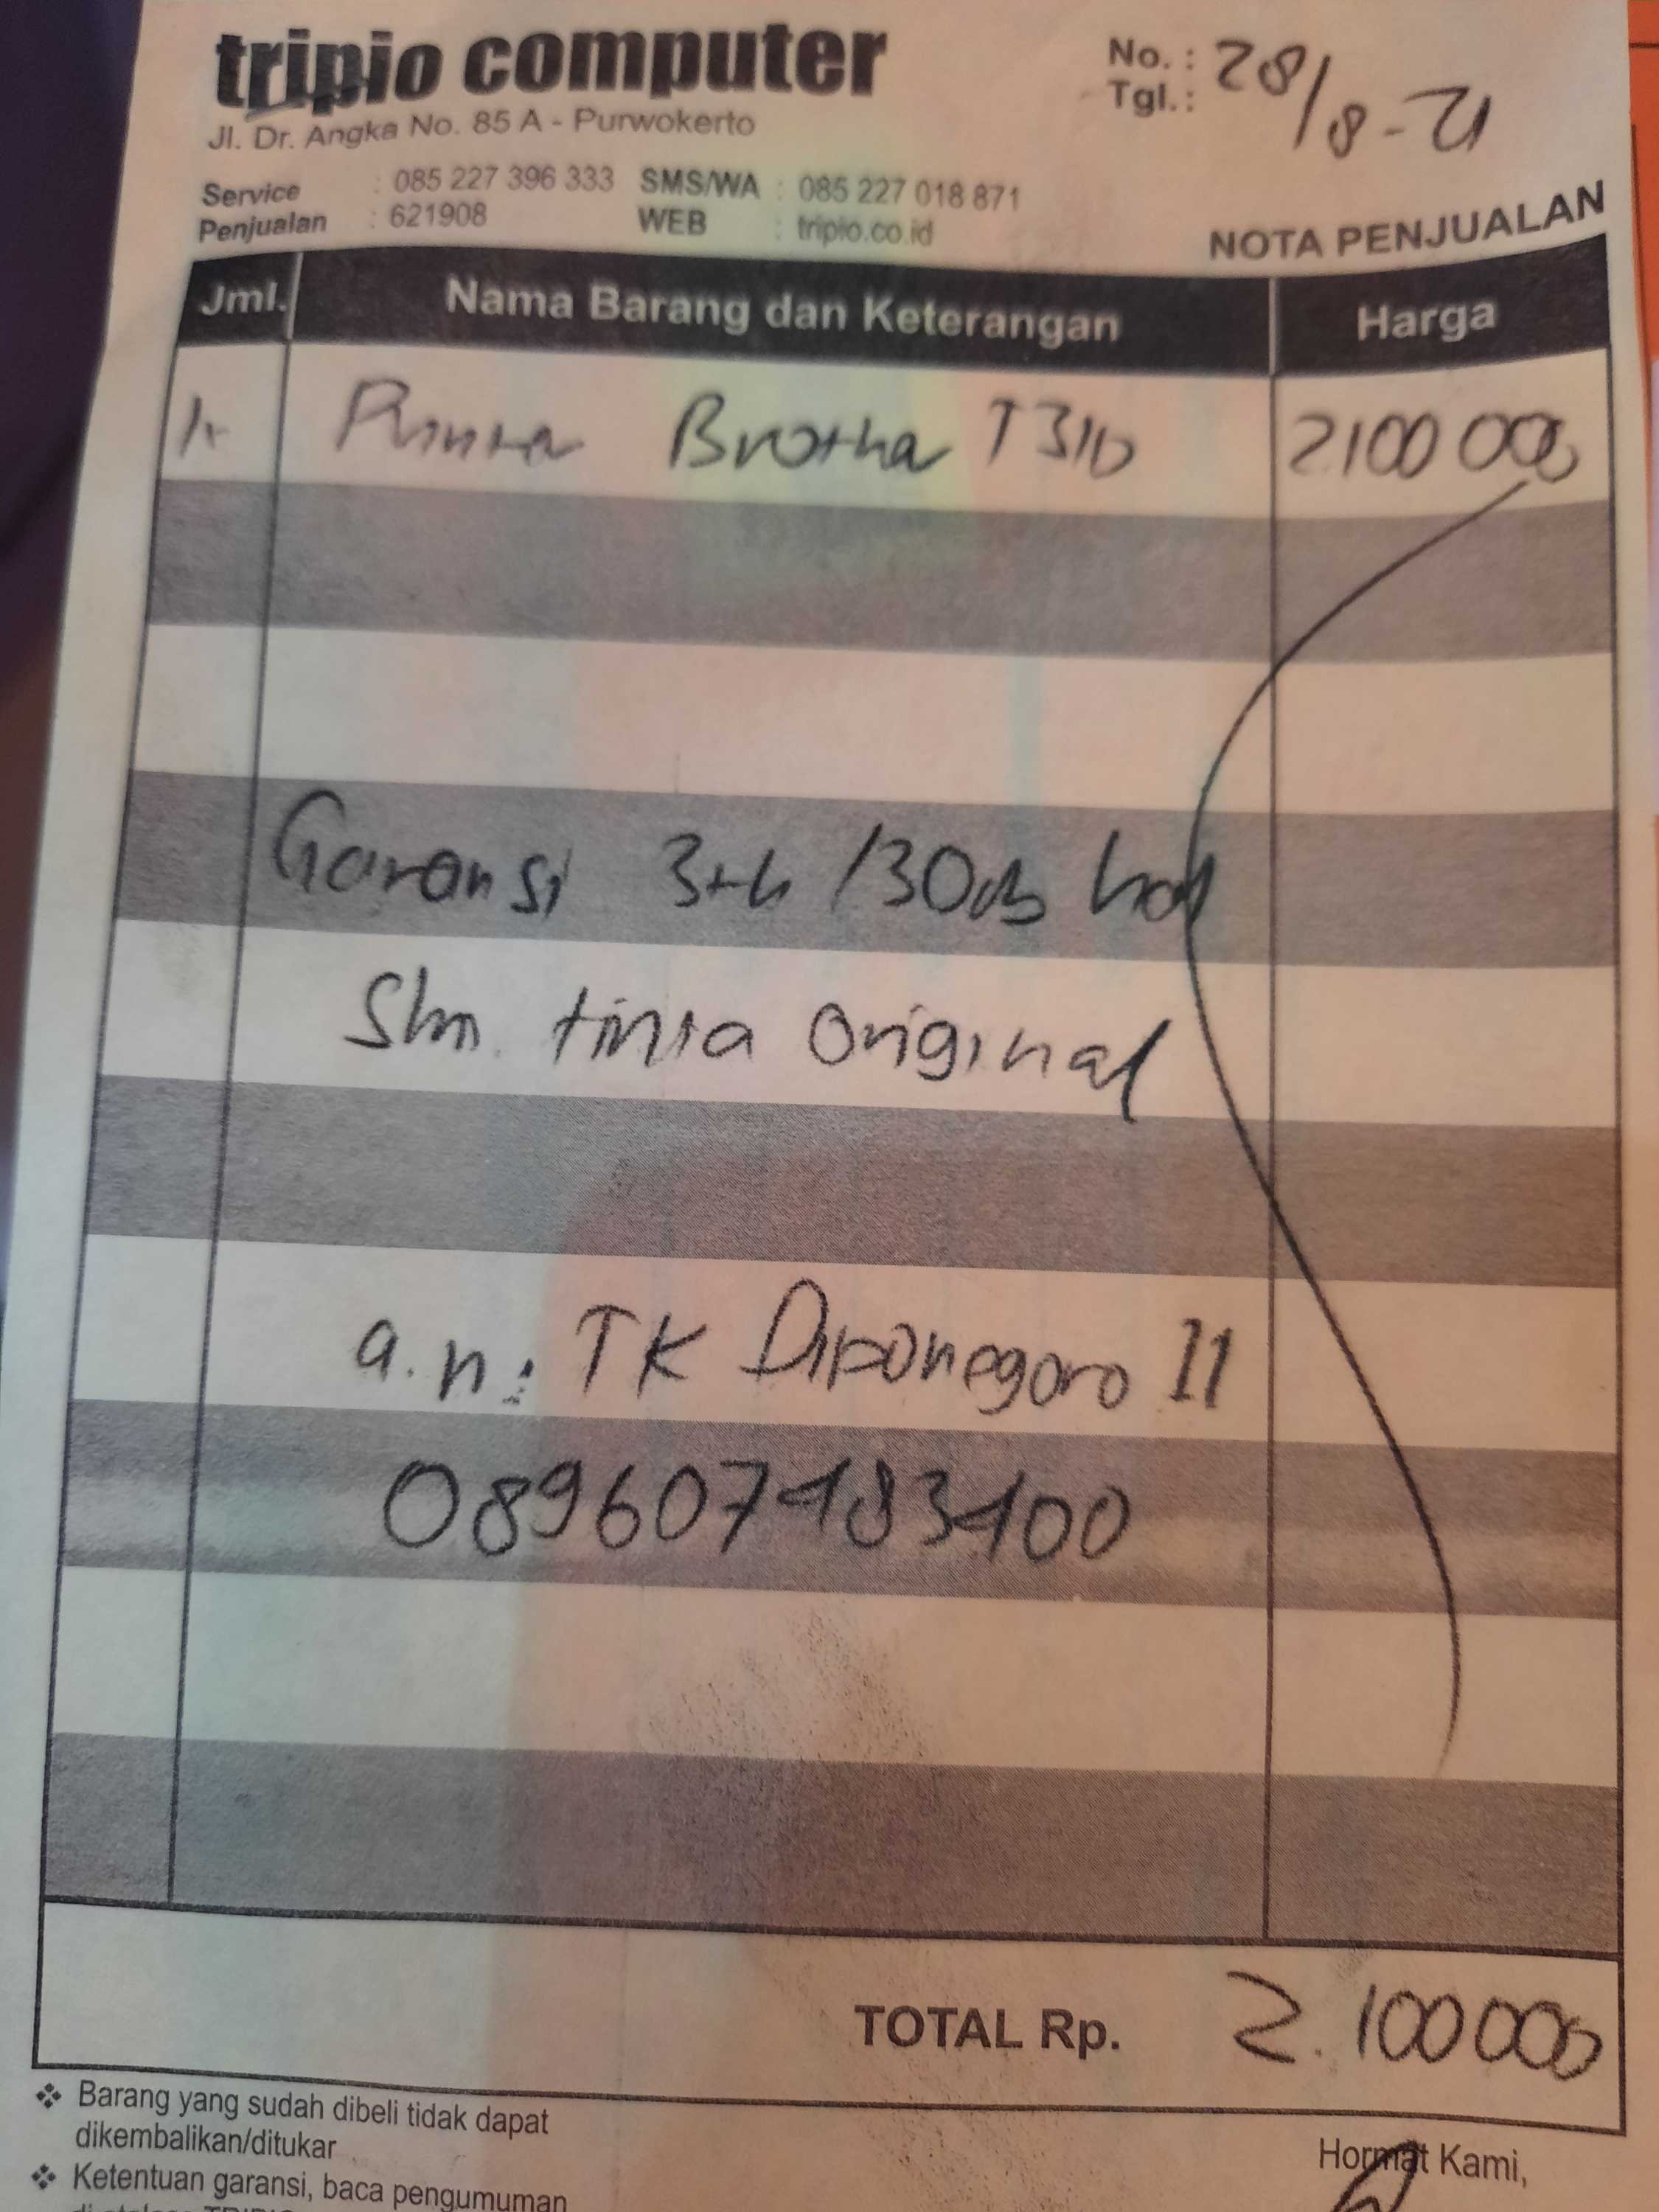 tripio computer
Jl. Dr. Angka No. 85 A - Purwokerto
No. :
Tgl. : 28/8-21
Service : 085 227 396 333 SMS/WA : 085 227 018 871
Penjualan : 621908 WEB : tripio.co.id
NOTA PENJUALAN
Jml. Nama Barang dan Keterangan Harga
1 Printer Brother T310 2100 000
Garansi 3th /30000 hal
Slm. tinta Original
a.n : TK Diponegoro II
089607483400
TOTAL Rp. 2.100000
Barang yang sudah dibeli tidak dapat
dikembalikan/ditukar
Hormat Kami,
Ketentuan garansi, baca pengumuman